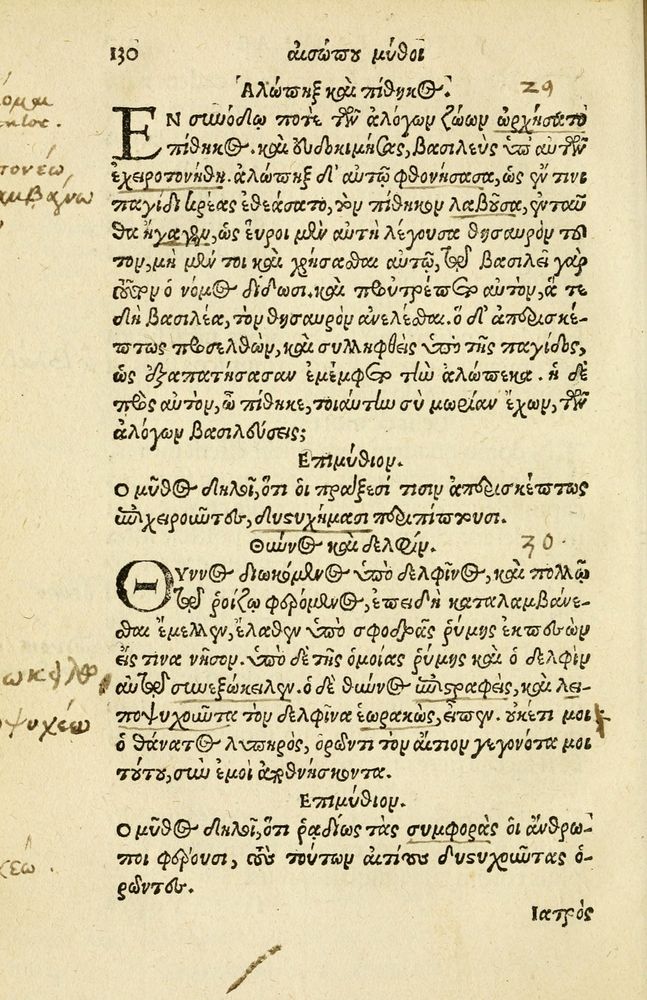 130 αισώπου μύθοι
Ἀλώπηξ καὶ πίθηκος. 29
ΕΝ συνόδῳ ποτὲ τῶν ἀλόγων ζώων ὠρχήσατο
πίθηκος. καὶ εὐδοκιμήσας, βασιλεὺς ὑπ' αὐτῶν
ἐχειροτονήθη. ἀλώπηξ δ' αὐτῷ φθονήσασα, ὡς ἔν τινι
παγίδι κρέας ἐθεάσατο, τὸν πίθηκον λαβοῦσα, ἐνταῦ
θα ἤγαγεν, ὡς εὕροι μὲν αὐτὴ λέγουσα θησαυρὸν τοῦ
τον, μὴ μέν τοι καὶ χρήσασθαι αὐτῷ, τῷ βασιλεῖ γὰρ
τοῦτον ὁ νόμος δίδωσι. καὶ προὔτρεπεν αὐτὸν, ἅ τε
δὴ βασιλέα, τὸν θησαυρὸν ἀνελέσθαι. ὁ δ' ἀπερισκέ-
πτως προσελθὼν, καὶ συλληφθεὶς ὑπὸ τῆς παγίδος,
ὡς ἐξαπατήσασαν ἐμέμφετο τὴν ἀλώπεκα. ἡ δὲ
πρὸς αὐτὸν, ὦ πίθηκε, τοιαύτην σὺ μωρίαν ἔχων, τῶν
ἀλόγων βασιλεύσεις;
Επιμύθιον.
Ο μῦθος δηλοῖ, ὅτι οἱ πράξεσί τισιν ἀπερισκέπτως
ἐπιχειροῦντες, δυστυχήμασι περιπίπτουσι.
Θύννος καὶ δελφίν. 30.
ΘΥΝΝος διωκόμενος ὑπὸ δελφῖνος, καὶ πολλῷ
τῷ ῥοίζῳ φερόμενος, ἐπειδὴ καταλαμβάνε-
σθαι ἔμελλεν, ἔλαθεν ὑπὸ σφοδρᾶς ῥύμης ἐκπεσὼν
εἴς τινα νῆσον. ὑπὸ δὲ τῆς ὁμοίας ῥύμης καὶ ὁ δελφὶν
αὐτῷ συνεξώκειλεν. ὁ δὲ θύννος ἐπιστραφεὶς, καὶ λει-
ποψυχοῦντα τὸν δελφῖνα ἑωρακὼς, εἶπεν. οὐκέτι μοι
ὁ θάνατος λυπηρὸς, ὁρῶντι τὸν αἴτιον γεγονότα μοι
τούτου, σὺν ἐμοὶ ἀποθνήσκοντα.
Επιμύθιον.
Ο μῦθος δηλοῖ, ὅτι ῥαδίως τὰς συμφορὰς οἱ ἄνθρω-
ποι φέρουσι, τοὺς τούτων αἰτίους δυστυχοῦντας ὁ-
ρῶντες.
Ιατρὸς